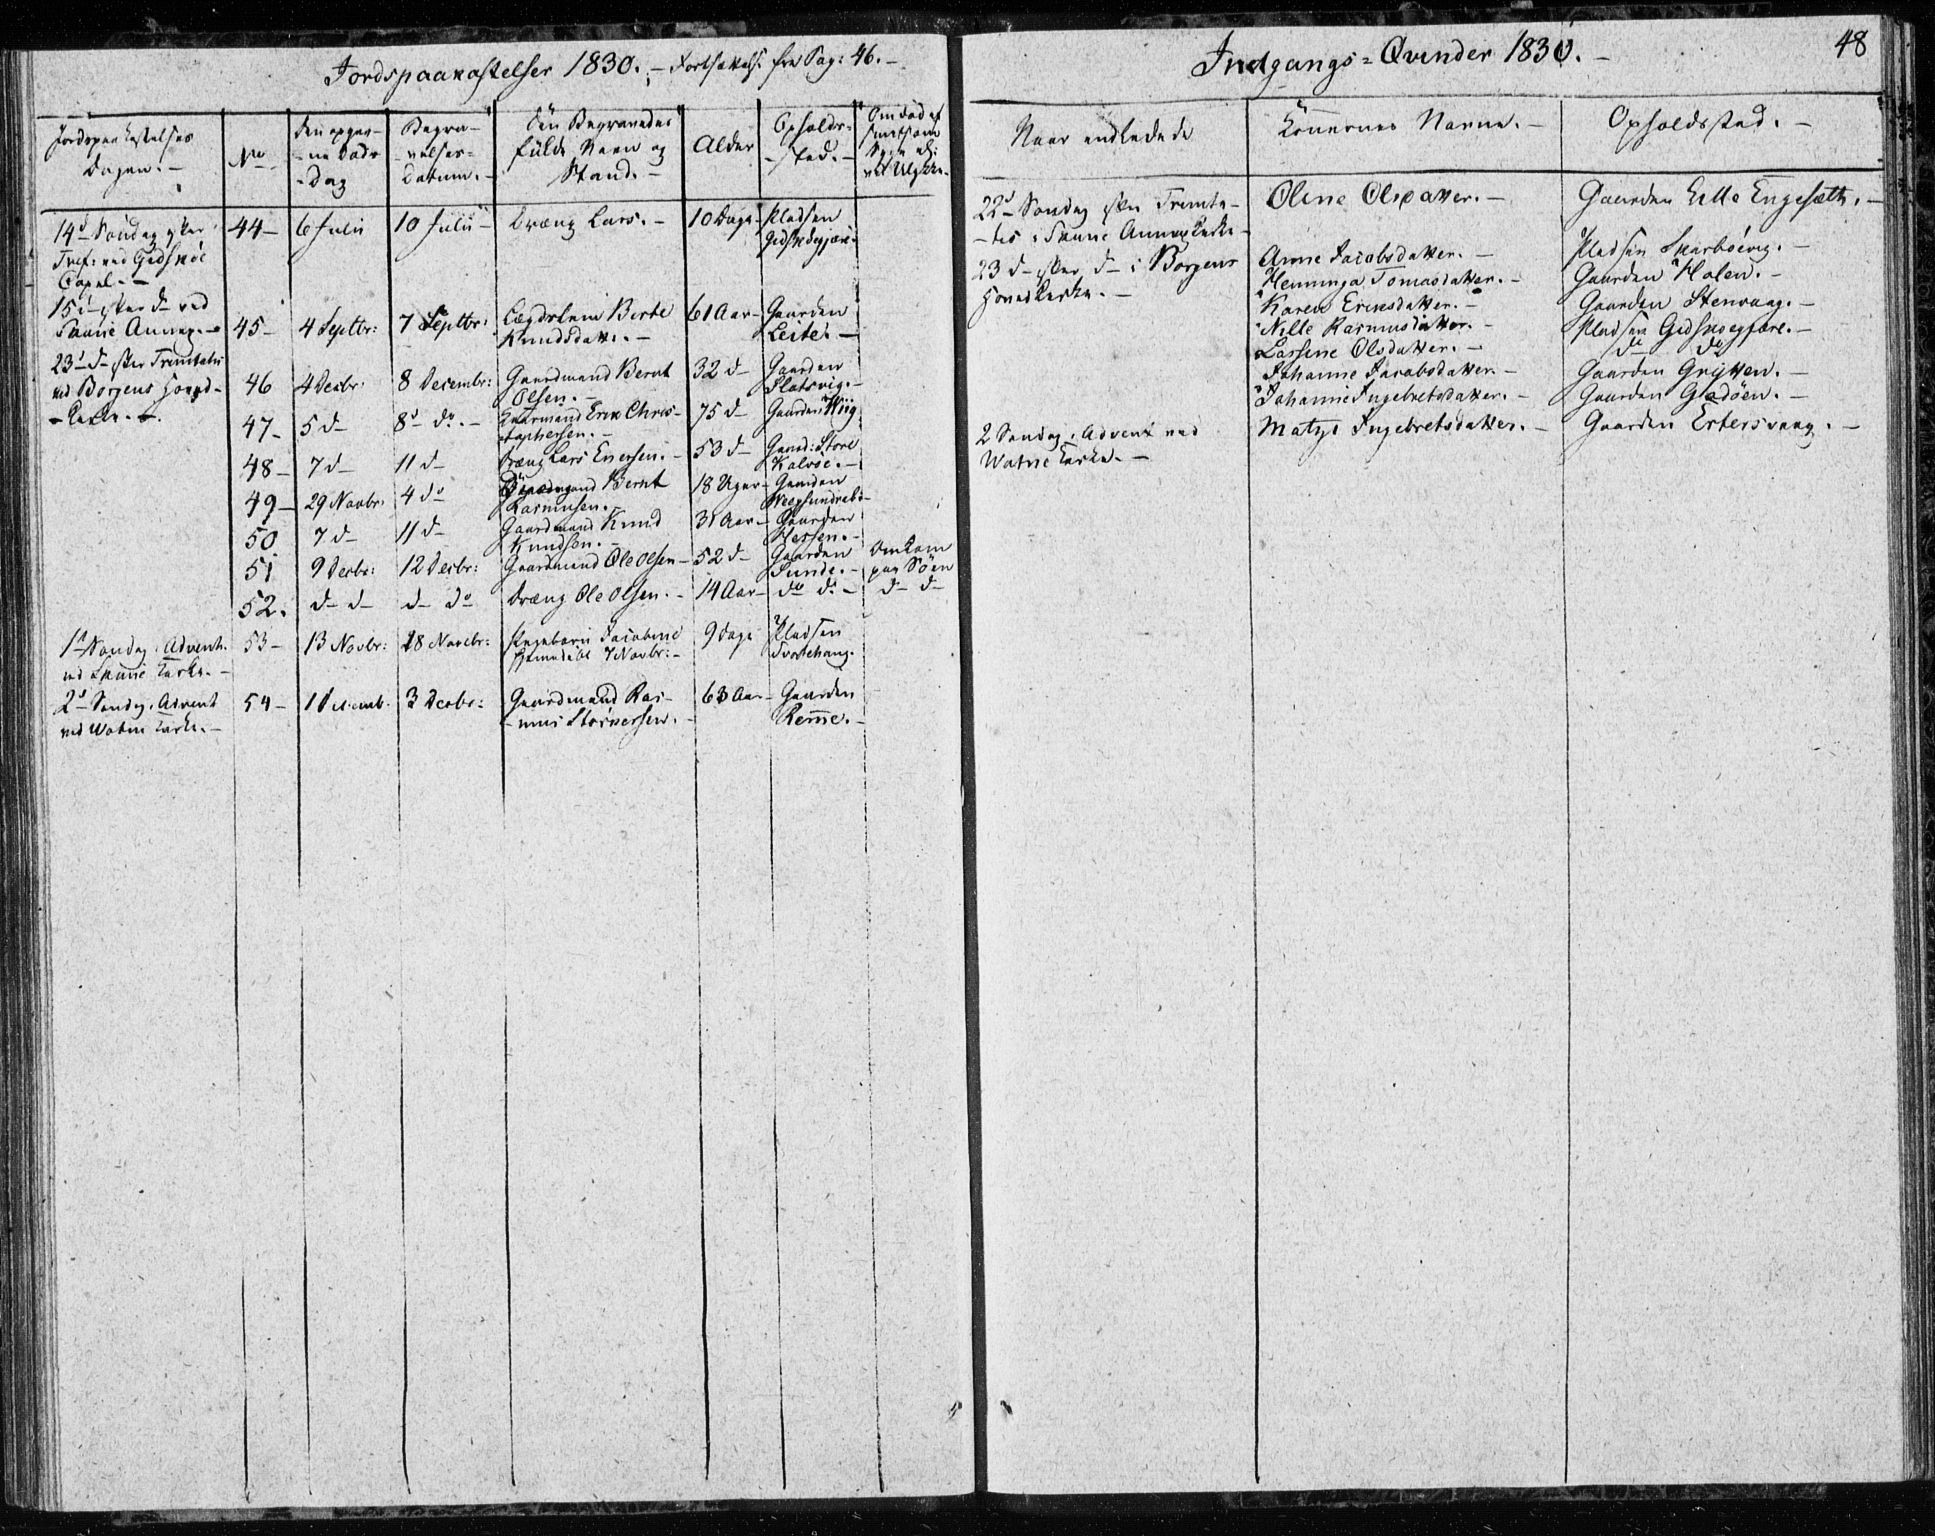 Jordspaakastelser 1830. – Fortsættelse fra Pag: 46. –
Jordspaakastelses Dagen. –
No
Den opgivne Døds-Dag
Begravelses-Datum. –
Den Begravedes fulde Navn og Stand. –
Alder
Opholds-sted. –
Om død af smitsom
14d Søndag efter Tref: ved Gidskøe Capel. – 44 – 6 Julii 10 Julii – Dræng Lars. – 10 Dage – Pladsen
15d – efter do ved Skuue Annex. – 45 – 4 Septbr: 7 Septbr: Lægdslem Berte Knudsdatt. – 61 Aar – Gaarden Leite. –
23d – d – efter Trinitatis ved Borgens Hoved-Kirke. – 46 4 Decbr: 8 Decembr: Gaardmand Bernt Olsen. – 32 d – Gaarden Slatsvig. –
47 – 5 d – 8d do. – Kaarmand Erik Christophersen. – 75 d – Gaarden Wiig
48 – 7 d – 11 d – Dræng Lars Eversen. – 53 d – Gaard: Store Kalvøe. –
49 – 29 Novbr: 4 do Bernt Rasmusen. – 18 Uger – Gaarden
50 7 d – 11 d – Gaardmand Knud Knudsen. – 31 Aar – Gaarden Hessen. –
51 9 Decbr: 12 Decbr: Gaardmand Ole Olsen – 52 d – Gaarden Sunde. – Omkom paa Søen
52. d – d – d – do Dræng Ole Olsen. – 14 Aar – do do – d – d –
1d Søndag i Advent ved Skuue Kirke. – 53 – 13 Novbr: 18 Novebr: Pigebarn Jacobine 7 Novbr: – 9 Dage Pladsen
2d Søndag i Advent ved Watne Kirke. – 54 – 1 Decemb. 3 Decbr: Gaardmand Rasmus Størkersen. – 63 Aar – Gaarden Remme. –
48
Indgangs-Qvinder 1830. –
Naar indledede
Konernes Navne. –
Opholdssted. –
22d – Søndag efter Trinitatis i Skuue Annex Kirke – Oline Olsdatter. – Gaarden Lille Engesætt. –
23 d – efter d – i Borgens Hoved Kirke. – Anne Jacobsdatter. – Pladsen Skarbøevig. –
Henninga Tomasdatter. – Gaarden Holen. –
Karen Ericksdatter. – Gaarden Stenvaag. –
Nille Rasmusdatter. – Pladsen
Lassine Olsdatter. – do do
Johanne Jacobsdatter. – Gaarden Grytten. –
Johanne Ingebretsdatter. – Gaarden Godøen. –
2 Søndag i Advent ved Watne Kirke. – Matzi Ingebretsdatter. – Gaarden Ertersvaag. –